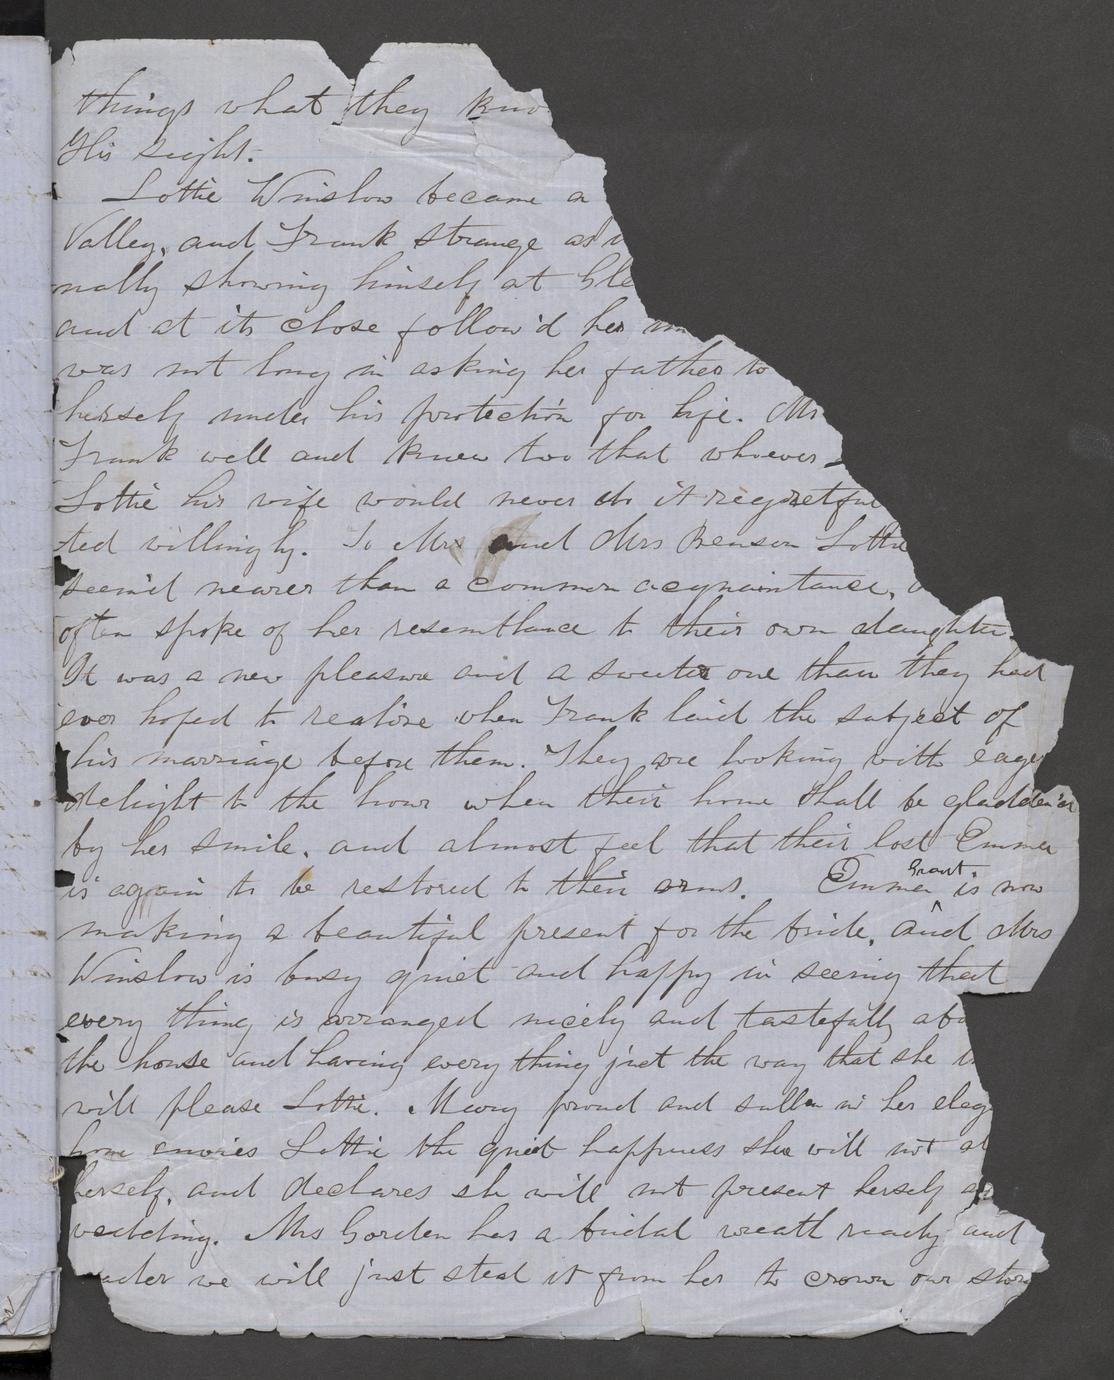 things what they kno
His sight.
Lottie Winslow became a
Valley, and Frank strange as i
nally showing himself at Gle
and at its close follow'd her
was not long in asking her father to
herself under his protection for life. Mr
Frank well and knew too that whoever
Lottie his wife would never do it regretful
ted willingly. To Mr and Mrs Benson Lottie
seem'd nearer than a common acquaintance,
often spoke of her resemblance to their own daughter.
It was a new pleasure and a sweeter one than they had
ever hoped to realize when Frank laid the subject of
his marriage before them. They are looking with eager
delight to the hour when their home shall be gladden'd
by her smile, and almost feel that their lost Emma
is again to be restored to their arms. Emma Grant is now
making a beautiful present for the bride, and Mrs
Winslow is busy quiet and happy in seeing that
every thing is arranged nicely and tastefully abo
the house and having every thing just the way that she
will please Lottie. Mary proud and sullen in her eleg
home envies Lottie the quiet happiness she will not
herself, and declares she will not present herself
wedding. Mrs Gorden has a bridal wreath ready and
eader we will just steal it from her to crown our story